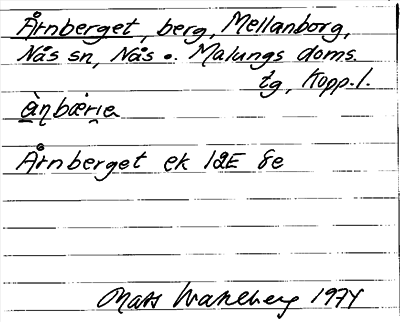 Årnberget, berg, Mellanborg,
Nås sn, Nås o. Malungs doms.
tg, Kopp. l.
ànbærıe
Årnberget ek 12E 8e
Mats Wahlberg 1974